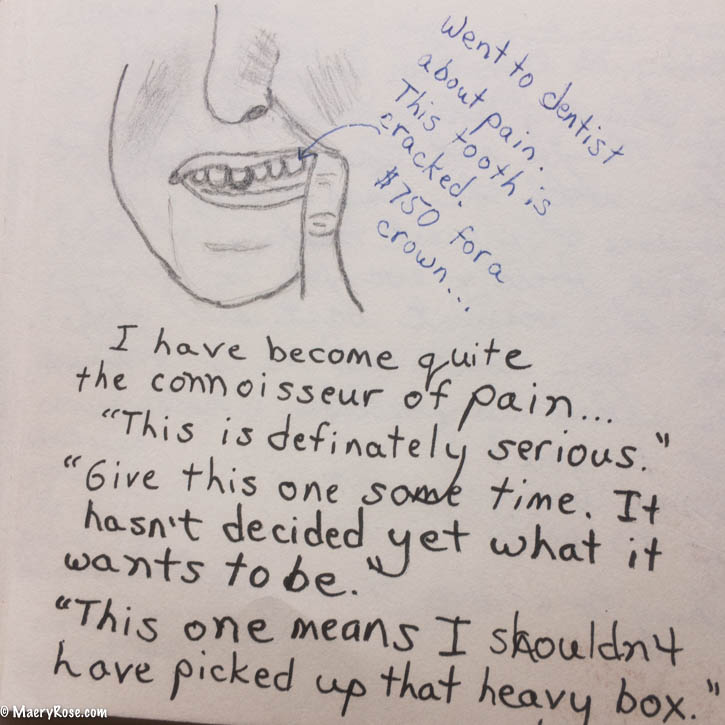 Went to dentist
about pain.
This tooth is
cracked.
$750 for a
crown...
I have become quite
the connoisseur of pain...
"This is definately serious."
"Give this one some time. It
hasn't decided yet what it
wants to be."
"This one means I shouldn't
have picked up that heavy box."
© MaeryRose.com